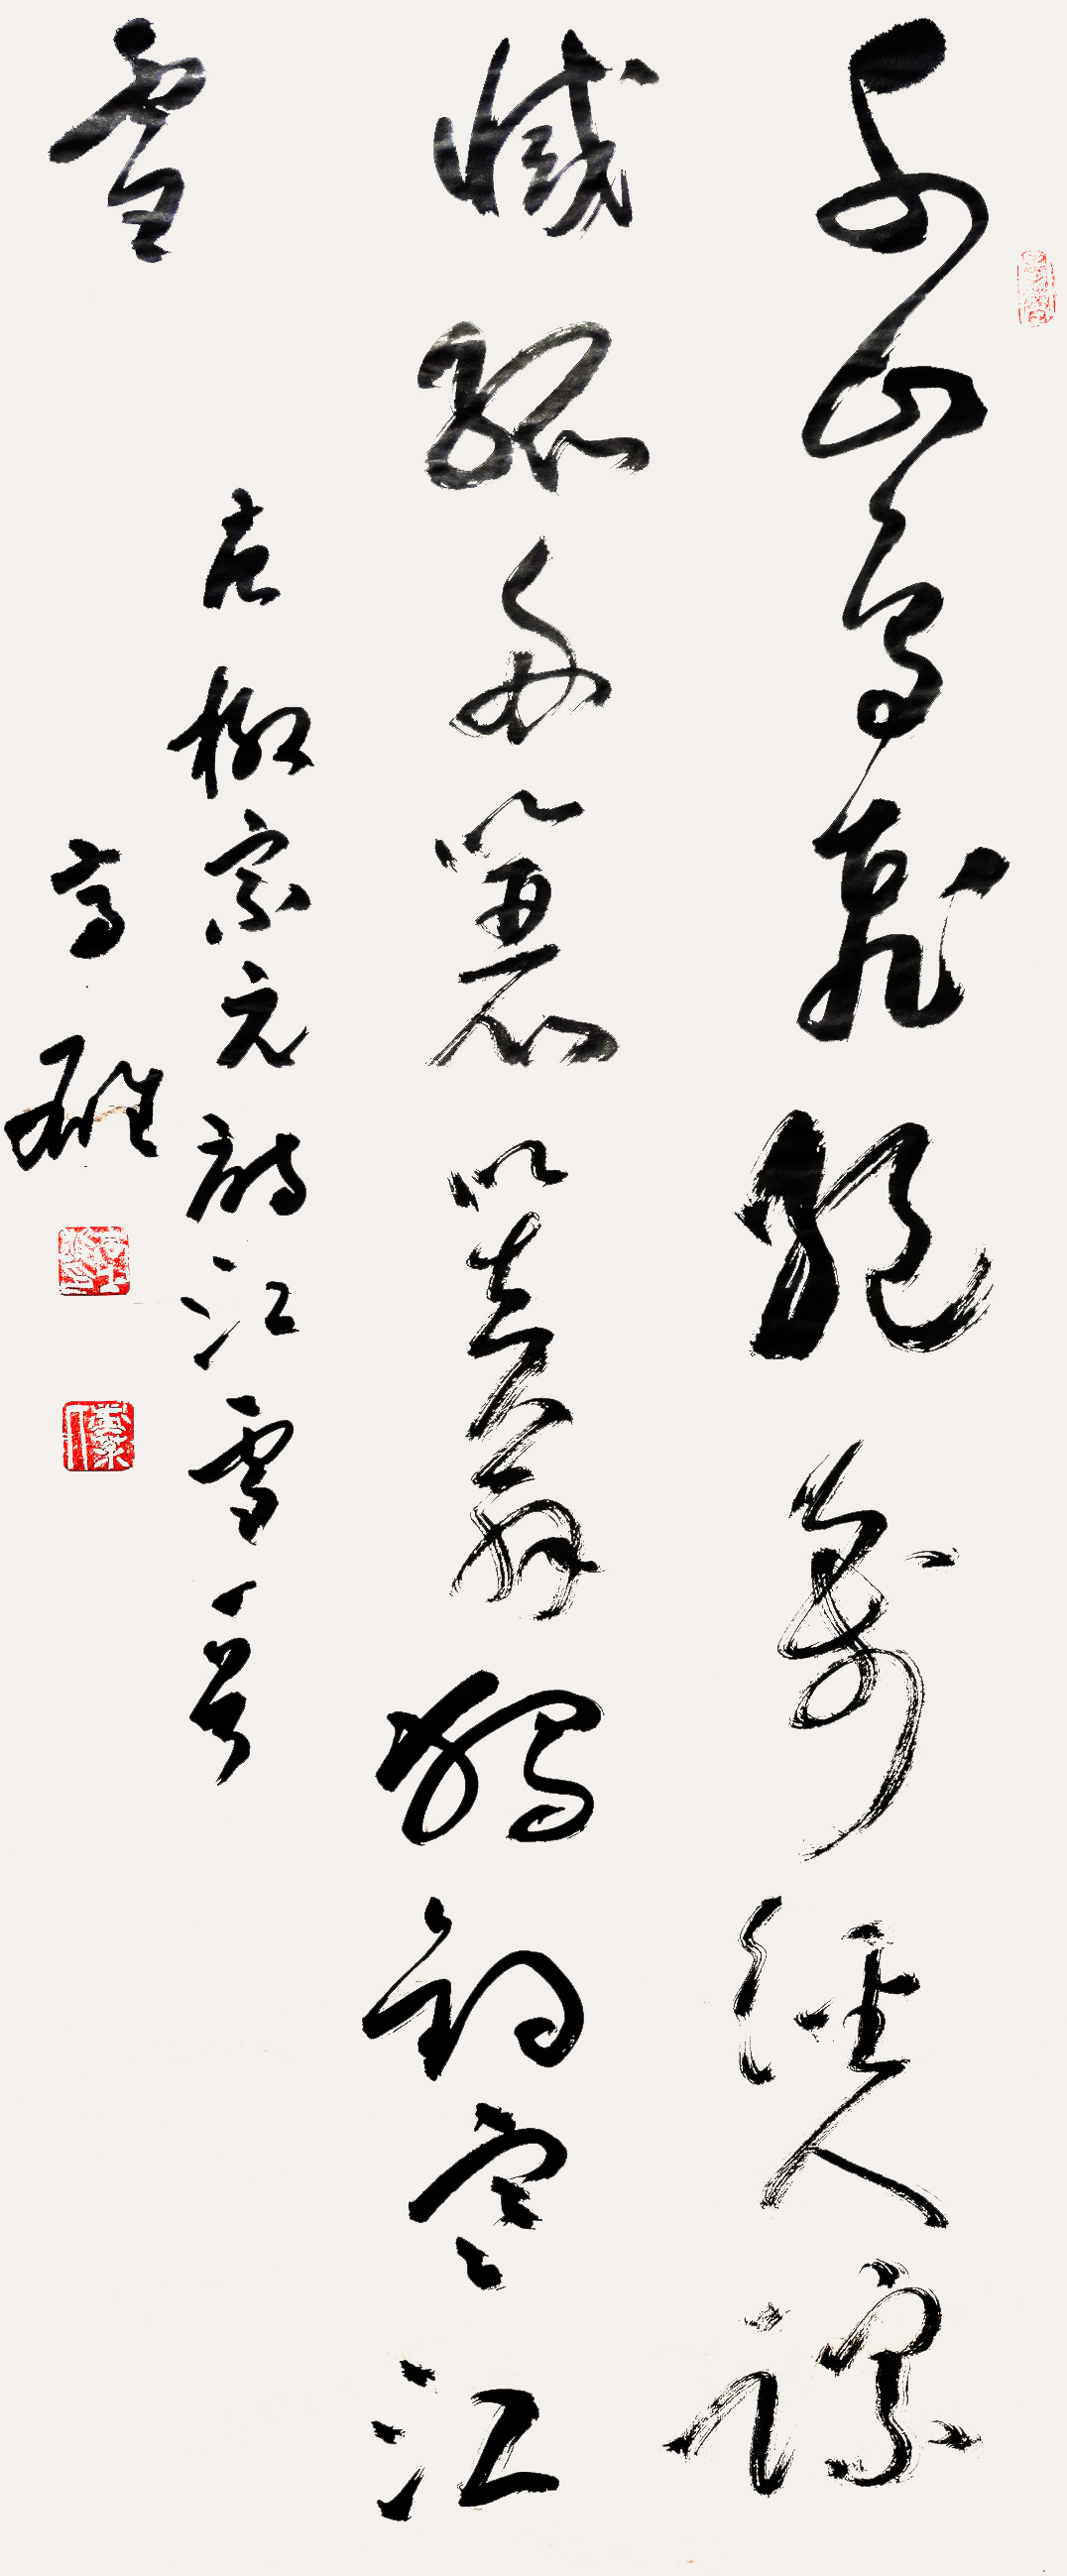 千山鳥飛絕萬徑人踪
滅孤舟簑笠翁獨釣寒江
雪
右柳宗元詩江雪一首
高雄